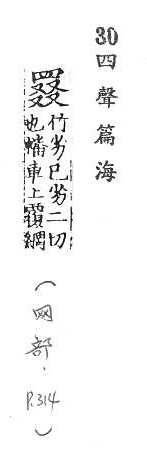 30四聲篇海
罬
竹劣已劣二切
也幡車上覆網
（网部，P.314）